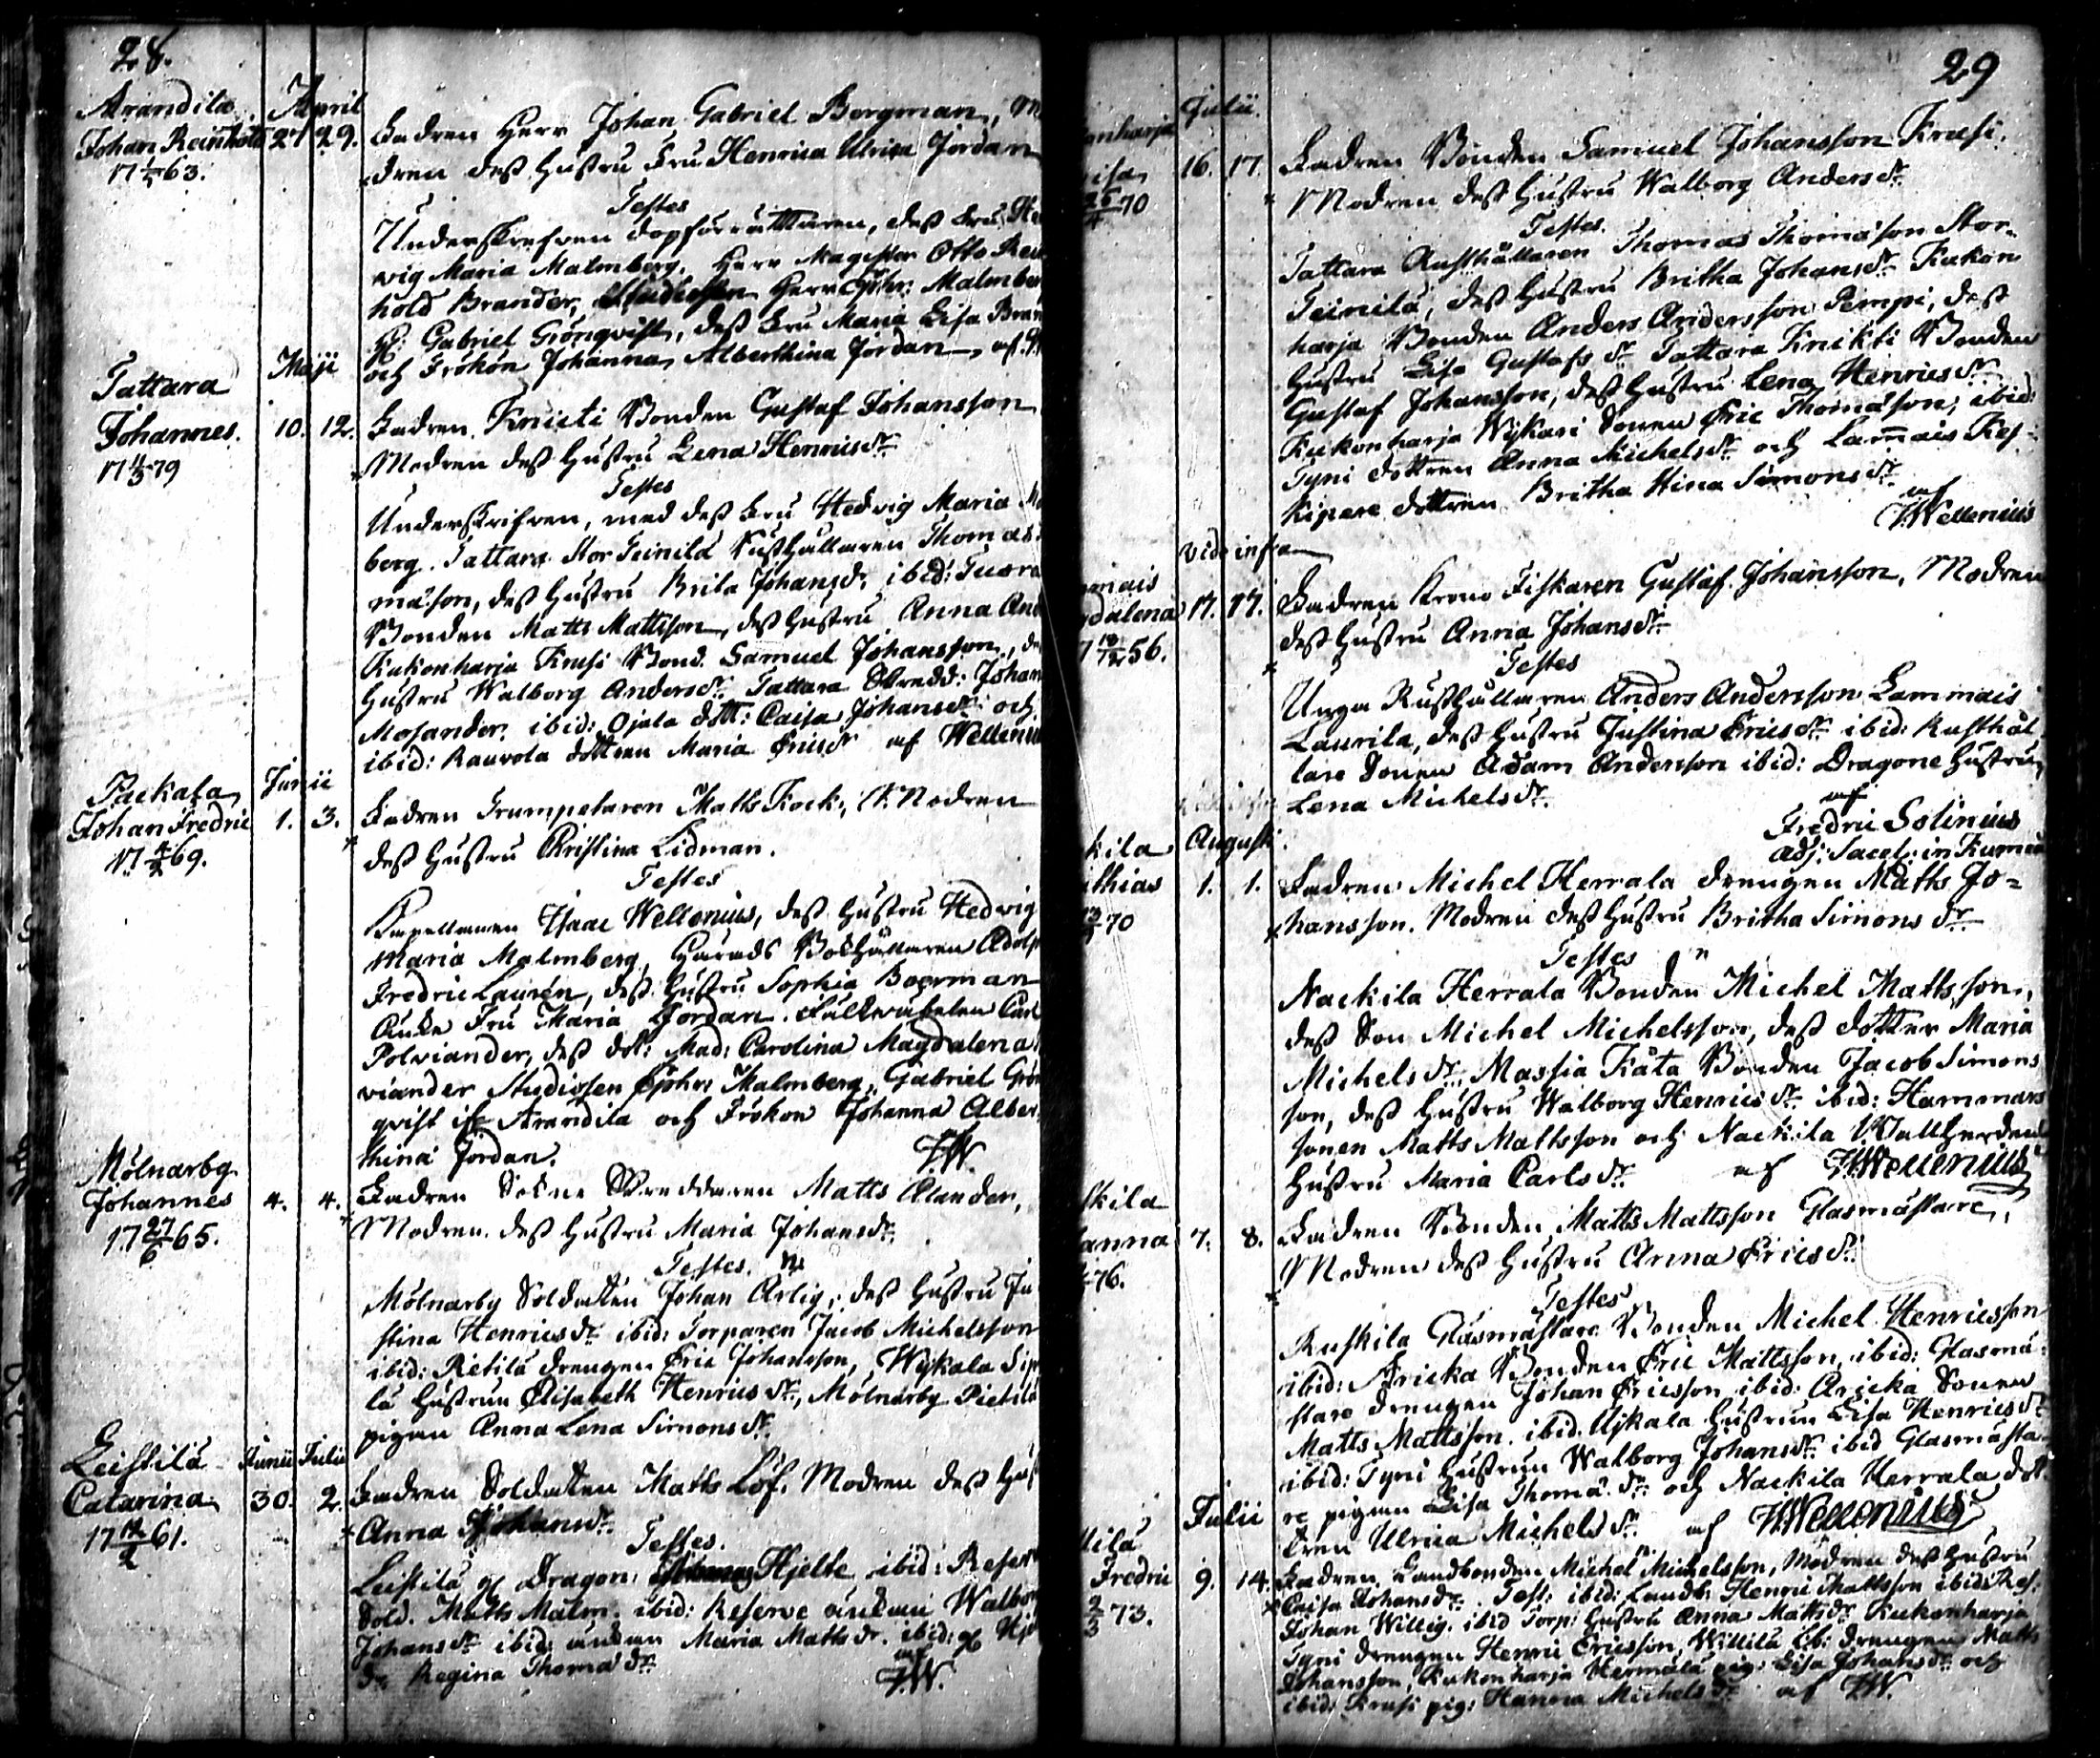 28.
Arandila April
Johan Reinhold 27 29. Fadren Herr Johan Gabriel Borgman, M
17 1/5 63. dren deß Hustru Fru Henrica Ulrica Jordan
Testes
Underskrefven dopförrättaren, deß Fru He
wig Maria Malmberg, Herr Magister Otto Rein
hold Brander, Studiosen Herr Ephr: Malmber
H: Gabriel Grönqvist, deß Fru Maria Lisa Bran
och Frökon Johanna Alberthina Jordan, af
Tattara Maji
Johannes. 10. 12. Fadren Knicti Bonden Gustaf Johansson
17 11/3 79 Modren deß Hustru Lena Henricsdr
Testes
Underskrifven, med deß Fru Hedvig Maria
berg. Tattara Stor Teinilä Rusthållaren Thomas
mas:son, deß Hustru Brita Johansdr, ibid: Tuora
Bonden Matts Mattsson, deß Hustru Anna And
Kukonharja Krusi Bond. Samuel Johansson, de
Hustru Walborg Andersdr Tattara Skredd: Johan
Masander, ibid: Ojala dott: Caisa Johansdr och
ibid: Rauvola dottren Maria Ericsdr af Welleniu
Paekala Junii
Johan Fredric 1. 3. Fadren Trumpetaren Matts Kock, Modren
17 4/2 69. deß Hustru Christina Lidman.
Testes
Capellanen Isaac Wellenius, deß Hustru Hedvig
Maria Malmberg, Härads Bokhållaren Adolp
Fredric Laurén, deß Hustru Sophia Boerman
Enke Fru Maria Jordan. Fältväbelen Carl
Polviander, deß dot: Mad: Carolina Magdalena
viander Studiosen Ephr: Malmberg, Gabriel Grön
qvist ifr Arandila och Frökon Johanna Alber
thina Jordan. I:W.
Mölnarby
Johannes 4. 4. Fadren Sokne Skreddaren Matts Elander,
17 27/6 65. Modren deß Hustru Maria Johansdr.
Testes.
Mölnarby Soldaten Johan Ärlig, deß Hustru Ju
stina Henricsdr ibid: Torparen Jacob Michelsson
ibid: Rietilä drengen Eric Johansson, Wykala Sip
lä Hustrun Elisabeth Henricsdr, Mölnarby Pietilä
pigan Anna Lena Simonsdr.
Leistilä Junii Julii
Catarina 30. 2. Fadren Soldaten Matts Löf. Modren deß Hust
17 12/2 61. Anna Johansdr.
Testes.
Leistilä gl Dragon: Hjelte ibid: Reserv
Sold. Matts Malm. ibid: Reserve enkan Walbor
Johansdr ibid: enkan Maria Mattsdr. ibid: gl Hje
dr Regina Thomädr. af I:W.
29
Julii.
onharja
isa 16. 17. Fadren Bonden Samuel Johansson Krusi.
26/4 70 Modren deß Hustru Walborg Andersdr.
Testes.
Tattara Rusthållaren Thomas Thomässon Stor
Teinilä, deß Hustru Britha Johansdr Kukon
harja Bonden Anders Andersson Pempi, deß
Hustru Lisa Gustafsdr Tattara Knikti Bonden
Gustaf Johansson, deß Hustru Lena Henricsdr.
Kukonharja Wykari Sonen Eric Thomässon, ibid:
Tyni dottren Anna Michelsdr och Lam̅ais Kes-
kipare dottren Britha Stina Simonsdr.
af I:Wellenius
vide infra
mais
dalena 17. 17. Fadren Krono Fiskaren Gustaf Johansson, Modren
7 18/12 56. deß Hustru Anna Johansdr.
Testes
Unga Rusthållaren Anders Andersson Lammais
Laurila, deß Hustru Justina Ericsdr ibid: Rusthål
lare Sonen Adam Andersson ibid: Dragone Hustru
Lena Michelsdr.
af
Fredric Solinius
Adj: Sacel: in Kumo
kila Augusti.
thias 1. 1. Fadren Michel Herrala drengen Matts Jo=
70 hansson. Modren deß Hustru Britha Simonsdr.
Testes
Naekila Herrala Bonden Michel Mattsson,
deß Son Michel Michelsson, deß dotter Maria
Michelsdr, Massia Käta Bonden Jacob Simons
son, deß Hustru Walborg Henricsdr ibid: Hammars
sonen Matts Mattsson och Naekila Wallherdens
Hustru Maria Carlsdr. af I:Wellenius
skila
anna 7. 8. Fadren Bonden Matts Mattsson Glasmästare,
76. Modren deß Hustru Anna Ericsdr.
Testes
Ruskila Glasmästare Bonden Michel Henricsson
ibid: Aricka Bonden Eric Mattsson, ibid: Glasmä
stare drengen Johan Ericsson ibid: Aricka Sonen
Matts Mattsson. ibid. Äjkala Hustrun Lisa Henricsdr
ibid: Tyni Hustrun Walborg Johansdr ibid Glasmästa
re pigan Lisa Thomädr och Naekila Herrala dot
tren Ulrica Michelsdr. af I:Wellenius
Julii
lilä
Fredric 9. 14. Fadren Landbonden Michel Michelsson, Modren deß Hustru
2/3 73. Caisa Johansdr. Test: ibid: Landb: Henric Mattsson ibid: Res:
Johan Willig. ibid Torp: Hustru Anna Mattsdr Kukonharja
Tyni drengen Henric Ericsson, Willilä Lb: drengen Matts
Johansson, Kukonharja Hermälä pig: Lisa Johansdr och
ibid: Krusi pig: Hanna Michelsdr af I:W.